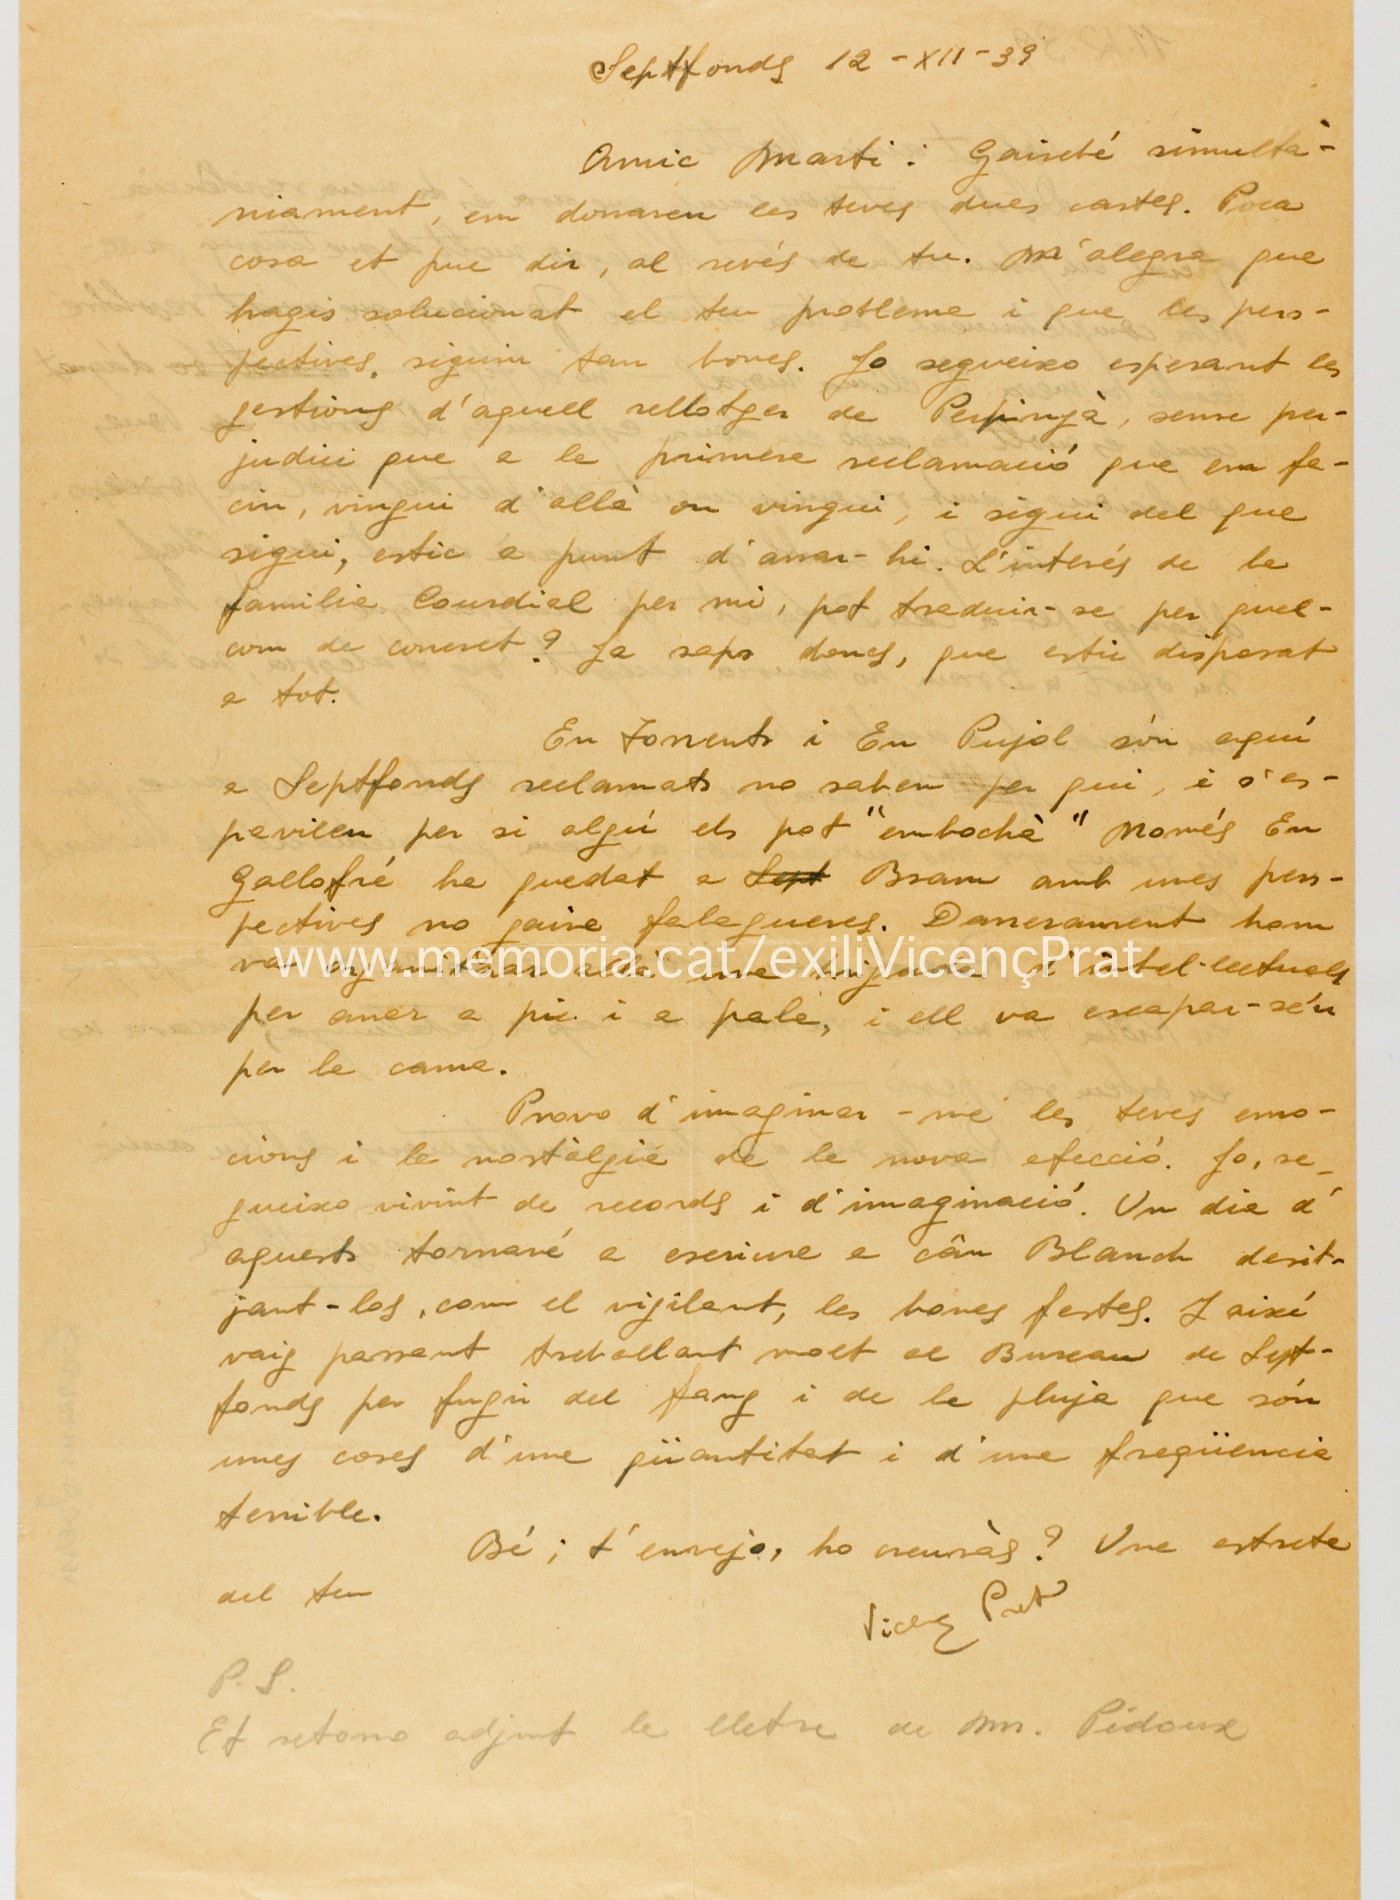 Septfonds 12-XII-39
Amic Martí: Gairebé simultà-
niament, em donaren les teves dues cartes. Poca
cosa et puc dir, al revés de tu. M'alegra que
hagis solucionat el teu problema i que les pers-
pectives, siguin tan bones. Jo segueixo esperant les
gestions d'aquell rellotger de Perpinyà, sense per-
judici que a la primera reclamació que em fa-
cin, vingui d'allà on vingui, i sigui del que
sigui, estic a punt d'anar-hi. L'interés de la
familia Courdial per mi, pot traduir-se per quel-
com de concret? Ja saps doncs, que estic disposat
a tot.
En Torrents i En Pujol són aquí
a Septfonds reclamats no saben per qui, i s'es-
pavilen per si algú els pot "embochà" Només En
Gallofré ha quedat a Sept Bram amb unes pers-
pectives no gaire falagueres. Darrerament hom
va organitzar allà una brigada d'intel·lectuals
per anar a pic i a pala, i ell va escapar-se'n
per la cama.
Provo d'imaginar-me les teves emo-
cions i la nostàlgia de la nova afecció. Jo, se-
gueixo vivint de records i d'imaginació. Un dia d'
aquests tornaré a escriure a cân Blanch desit-
jant-los, com el vigilant, les bones festes. I així
vaig passant treballant molt al Bureau de Sept-
fonds per fugir del fang i de la pluja que són
unes coses d'una qüantitat i d'una freqüencia
terrible.
Bé; t'envejo, ho creuràs? Una estreta
del teu
Vicenç Prat
P.S.
Et retorno adjunt la lletra de Mr. Pidoux
www.memoria.cat/exiliVicençPrat